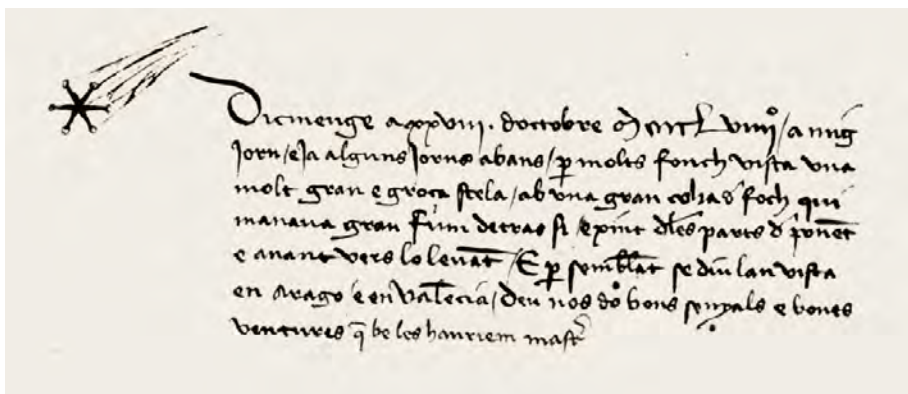 Dicmenge a xxviij. doctobre MccccLviiijº / a mig
jorn / e ja alguns jorns abans / p̱ molts fonch vista vna
molt gran e groça stela / ab vna gran coha d̄ foch qui
manaua gran fum detras si / exint dl̄es parts d̄ ponēt
e anant vers lo leuāt / E p̱ sembl̄at se diu lan vista
en Arago e en val̄ecia / deu nos do bons senyals e bones
ventures q̄ be les hauriem